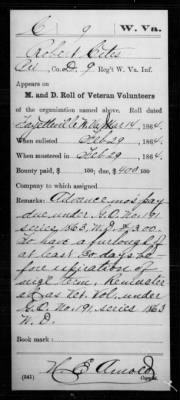 C 9 W. Va.
Robert Cites
Pvt., Co. D, 9 Reg't W. Va. Inf.
Appears on
M. and D. Roll of Veteran Volunteers
of the organization named above. Roll dated
Fayetteville W. Va. Mar 14, 1864.
When enlisted Feb 29, 1864.
When mustered in Feb 29, 1864.
Bounty paid, $ 100; due, $ 400 100
Company to which assigned
Remarks: Advance mos. pay
due under G.O. No. 191
series 1863. W.D. $13.00.
To have a furlough of
at least 30 days be-
fore expiration of
orig'l term. Remuster
ed as Vet. Vol. under
G.O. No. 191, series 1863
W.D.
Book mark:
Arnold
(341) Copyist.